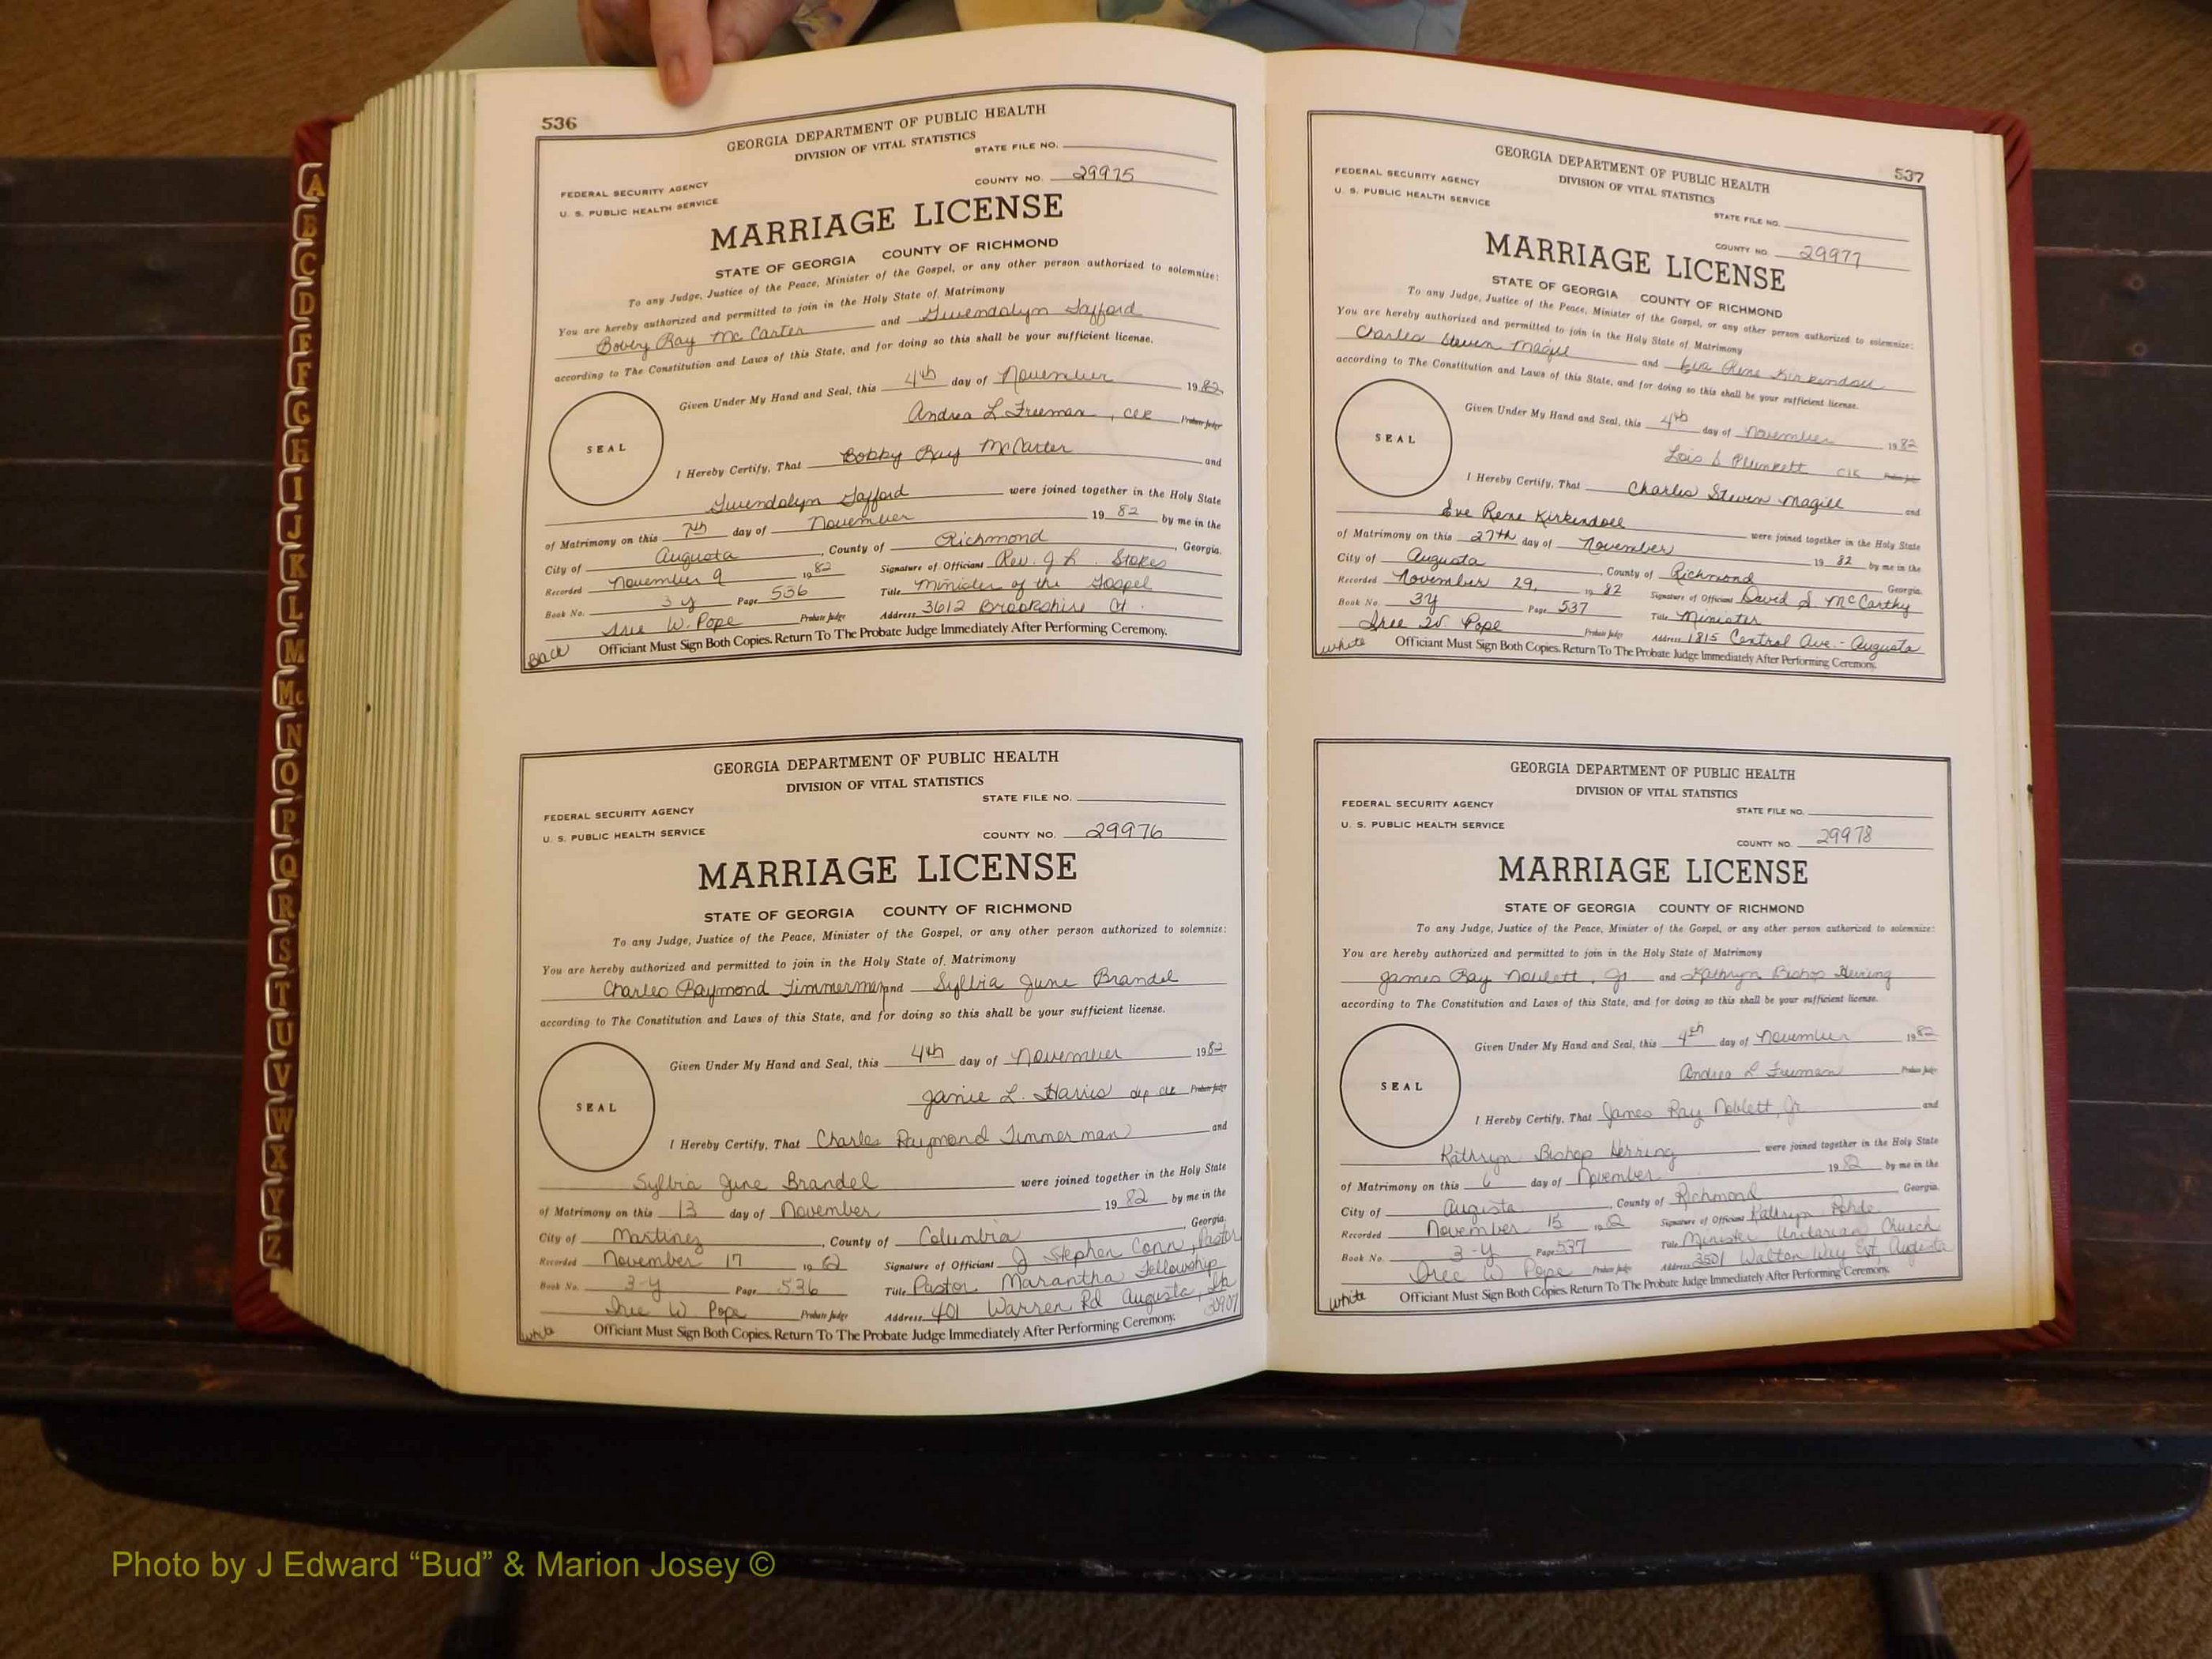 536
GEORGIA DEPARTMENT OF PUBLIC HEALTH
DIVISION OF VITAL STATISTICS
STATE FILE NO.
FEDERAL SECURITY AGENCY
COUNTY NO. 29975
U. S. PUBLIC HEALTH SERVICE
MARRIAGE LICENSE
STATE OF GEORGIA COUNTY OF RICHMOND
To any Judge, Justice of the Peace, Minister of the Gospel, or any other person authorized to solemnize:
You are hereby authorized and permitted to join in the Holy State of Matrimony
Bobby Ray McCarter and Gwendolyn Tafford
according to The Constitution and Laws of this State, and for doing so this shall be your sufficient license.
Given Under My Hand and Seal, this 4th day of November 1982
Andrea L Freeman, CLK Probate Judge
SEAL
I Hereby Certify, That Bobby Ray McCarter and
Gwendolyn Tafford were joined together in the Holy State
of Matrimony on this 7th day of November 19 82 by me in the
City of Augusta, County of Richmond, Georgia.
Recorded November 9 19 82 Signature of Officiant Rev. J. L. Stokes
Book No. 3 y Page 536 Title Minister of the Gospel
W. Pope Probate Judge Address 3612 Brookshire Ct.
Officiant Must Sign Both Copies. Return To The Probate Judge Immediately After Performing Ceremony.
Black
GEORGIA DEPARTMENT OF PUBLIC HEALTH
DIVISION OF VITAL STATISTICS
STATE FILE NO.
FEDERAL SECURITY AGENCY
U. S. PUBLIC HEALTH SERVICE
COUNTY NO. 29976
MARRIAGE LICENSE
STATE OF GEORGIA COUNTY OF RICHMOND
To any Judge, Justice of the Peace, Minister of the Gospel, or any other person authorized to solemnize:
You are hereby authorized and permitted to join in the Holy State of Matrimony
Charles Raymond Timmerman and Sylbia June Brandel
according to The Constitution and Laws of this State, and for doing so this shall be your sufficient license.
Given Under My Hand and Seal, this 4th day of November 1982
Janie L. Harris dep clk Probate Judge
SEAL
I Hereby Certify, That Charles Raymond Timmerman and
Sylbia June Brandel were joined together in the Holy State
of Matrimony on this 13 day of November 19 82 by me in the
City of Martinez, County of Columbia, Georgia.
Recorded November 17 19 82 Signature of Officiant J Stephen Conn, Pastor
Book No. 3-y Page 536 Title Pastor Marantha Fellowship
W. Pope Probate Judge Address 401 Warren Rd Augusta, Ga 30907
Officiant Must Sign Both Copies. Return To The Probate Judge Immediately After Performing Ceremony.
white
537
GEORGIA DEPARTMENT OF PUBLIC HEALTH
DIVISION OF VITAL STATISTICS
FEDERAL SECURITY AGENCY
U. S. PUBLIC HEALTH SERVICE
STATE FILE NO.
COUNTY NO. 29977
MARRIAGE LICENSE
STATE OF GEORGIA COUNTY OF RICHMOND
To any Judge, Justice of the Peace, Minister of the Gospel, or any other person authorized to solemnize:
You are hereby authorized and permitted to join in the Holy State of Matrimony
Charles Steven Magill and Eva Rene Kirkendoll
according to The Constitution and Laws of this State, and for doing so this shall be your sufficient license.
Given Under My Hand and Seal, this 4th day of November 1982
Lois S Plunkett Clk Probate Judge
SEAL
I Hereby Certify, That Charles Steven Magill and
Eve Rene Kirkendoll were joined together in the Holy State
of Matrimony on this 27th day of November 19 82 by me in the
City of Augusta, County of Richmond Georgia.
Recorded November 29, 19 82 Signature of Officiant David S. McCarthy
Book No. 3y Page 537 Title Minister
W. Pope Probate Judge Address 1815 Central Ave. - Augusta
Officiant Must Sign Both Copies. Return To The Probate Judge Immediately After Performing Ceremony.
white
GEORGIA DEPARTMENT OF PUBLIC HEALTH
DIVISION OF VITAL STATISTICS
FEDERAL SECURITY AGENCY
STATE FILE NO.
U. S. PUBLIC HEALTH SERVICE
COUNTY NO. 29978
MARRIAGE LICENSE
STATE OF GEORGIA COUNTY OF RICHMOND
To any Judge, Justice of the Peace, Minister of the Gospel, or any other person authorized to solemnize:
You are hereby authorized and permitted to join in the Holy State of Matrimony
James Ray Noblett, Jr. and Kathryn Bishop Herring
according to The Constitution and Laws of this State, and for doing so this shall be your sufficient license.
Given Under My Hand and Seal, this 4th day of November 1982
Andrea L Freeman Probate Judge
SEAL
I Hereby Certify, That James Ray Noblett, Jr. and
Kathryn Bishop Herring were joined together in the Holy State
of Matrimony on this 6 day of November 19 82 by me in the
City of Augusta, County of Richmond Georgia.
Recorded November 15 19 82 Signature of Officiant Kathryn Rohde
Book No. 3-y Page 537 Title Minister Unitarian Church
W Pope Probate Judge Address 3501 Walton Way Ext, Augusta
Officiant Must Sign Both Copies. Return To The Probate Judge Immediately After Performing Ceremony.
white
A
B
C
D
E
F
G
H
I
J
K
L
M
Mc
N
O
P
Q
R
S
T
U
V
W
X
Y
Z
Photo by J Edward “Bud” & Marion Josey ©